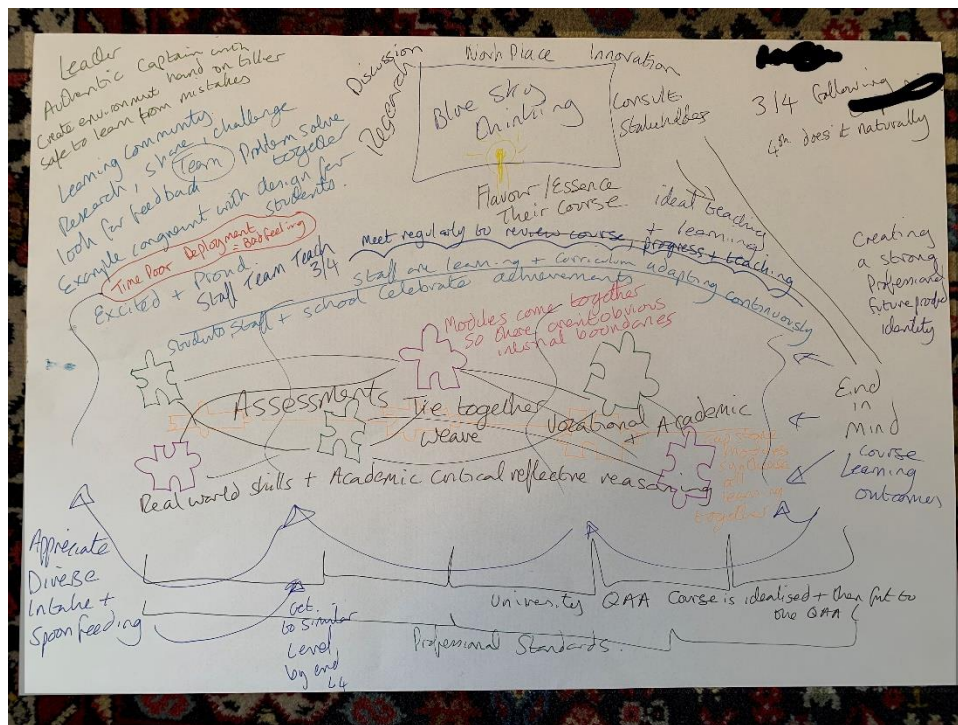 Leader
Authentic Captain with
hand on tiller
Create environment
safe to learn from mistakes
Learning Community
Research, share, challenge
Team Problem solve
together
look for feedback
Example congruent with design for
students.
Time Poor Deployment
= Bad feeling
Excited + Proud.
Staff Team Teach
3/4
Discussion
Research
Work Place Innovation
Blue Sky
Thinking
Consult.
Stakeholders
Flavour/Essence
Their Course.
ideal teaching
+ learning
3/4 following
4th does it naturally
Creating
a strong
Professional
future
identity
Meet regularly to review course, progress + teaching
Staff are learning + Curriculum adapting continuously
Students staff + school celebrate achievements
Modules come together
So there aren't obvious
internal boundaries
Assessments
Tie together
weave
Vocational + Academic
Real world skills + Academic Critical reflective reasoning
together
End
in
Mind
course
Learning
outcomes
Appreciate
Diverse
Intake +
Spoon feeding
Get.
to similar
Level
by end
L4
University QAA Course is idealised + then put to
the QAA
Professional Standards.